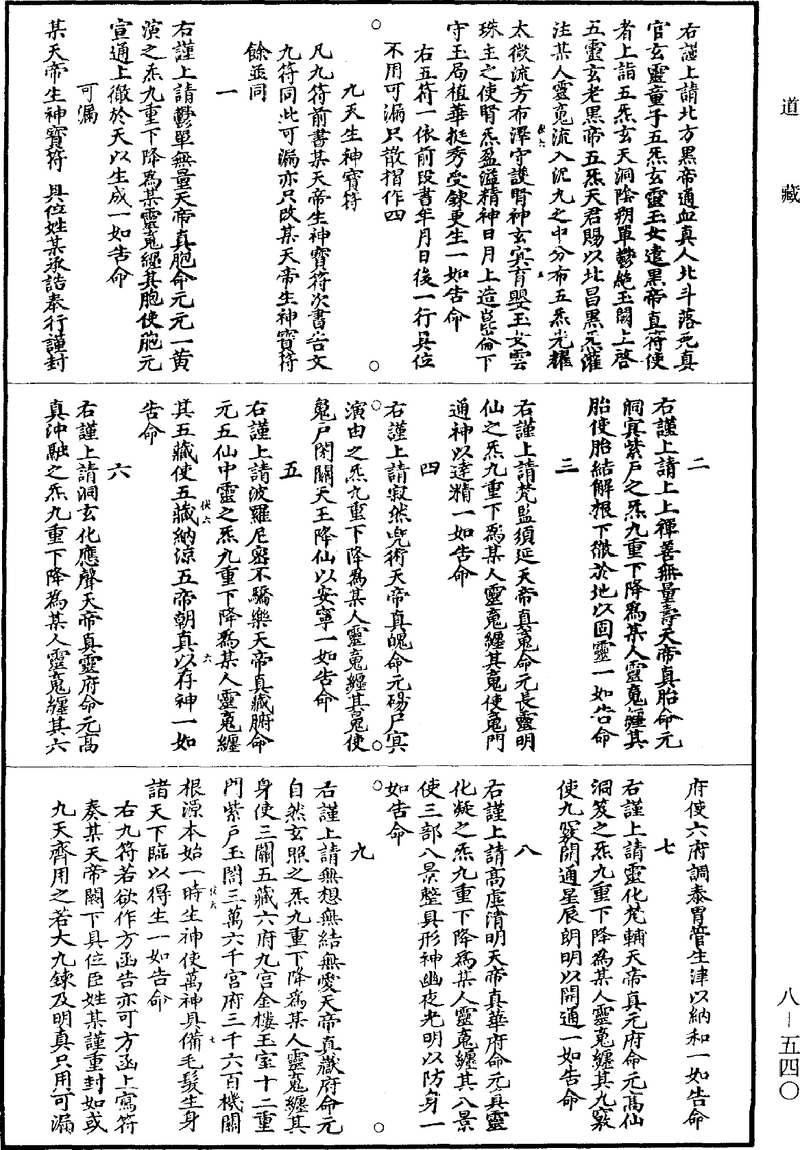 道藏
右謹上請北方黑帝通血真人北斗落死真
官玄靈童子五炁玄靈玉女遣黑帝直符使
者上詣五炁玄天洞陰朔單鬱絕玉闕上啓
五靈玄老黑帝五炁天君賜以北昌黑炁灌
注某人靈䰟流入沉九之中分布五炁光耀
太微流芳布澤守護腎神玄冥育嬰玉女雲
珠主之使腎炁盈溢精神日月上造崑崙下
守玉局植華挺秀受鍊更生一如告命
右五符一依前段書年月日後一行具位
不用可漏只散摺作四
九天生神寶符
凡九符前書某天帝生神寶符次書告文
九符同此可漏亦只改某天帝生神寶符
餘並同
一
右謹上請鬱單無量天帝真胞命元元一黃
演之炁九重下降為某靈䰟纏其胞使胞元
宣通上徹於天以生成一如告命
可漏
某天帝生神寶符 具位姓某承誥奉行謹封
二
右謹上請上上禪善無量壽天帝真胎命元
洞冥紫戶之炁九重下降為某人靈䰟纏其
胎使胎結解根下徹於地以固靈一如告命
三
右謹上請梵監須延天帝真䰟命元長靈明
仙之炁九重下為某人靈䰟纏其䰟使䰟門
通神以達精一如告命
四
右謹上請寂然兜術天帝真魄命元碭尸冥
演由之炁九重下降為某人靈䰟纏其䰟使
䰟戶閉關天王降仙以安寧一如告命
五
右謹上請波羅尼密不驕樂天帝真藏腑命
元五仙中靈之炁九重下降為某人靈䰟纏
其五藏使五藏納涼五帝朝真以存神一如
告命
六
右謹上請洞玄化應聲天帝真靈府命元高
真沖融之炁九重下降為某人靈䰟纏其六
府使六府調泰胃管生津以納和一如告命
七
右謹上請靈化梵輔天帝真元府命元高仙
洞笈之炁九重下降為某人靈䰟纏其九竅
使九竅開通星辰朗明以開通一如告命
八
右謹上請高虛清明天帝真華府命元真靈
化凝之炁九重下降為某人靈䰟纏其八景
使三部八景整具形神幽夜光明以防身一
如告命
九
右謹上請無想無結無愛天帝真嶽府命元
自然玄照之炁九重下降為某人靈䰟纏其
身使三關五藏六府九宮金樓玉室十二重
門紫戶玉閤三萬六千宮府三千六百機關
根源本始一時生神使萬神具備毛髮生身
諸天下臨以得生一如告命
右九符若欲作方函告亦可方函上寫符
奏某天帝闕下具位臣姓某謹重封如或
九天齊用之若大九鍊及明真只用可漏
八－五四〇